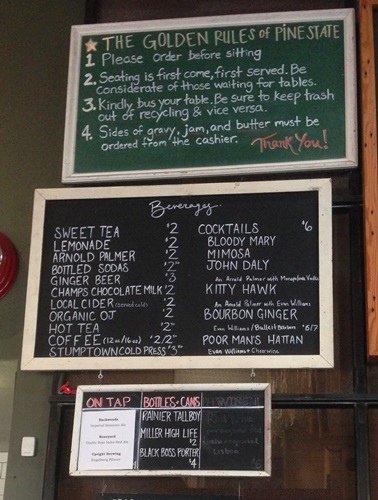 ★ THE GOLDEN RULES OF PINE STATE
1 Please order before sitting
2. Seating is first come, first served. Be
considerate of those waiting for tables.
3. Kindly bus your table. Be sure to keep trash
out of recycling & vice versa.
4. Sides of gravy, jam, and butter must be
ordered from the cashier. Thank You!
Beverages
SWEET TEA $2
LEMONADE $2
ARNOLD PALMER $2
BOTTLED SODAS
GINGER BEER $3
CHAMPS CHOCOLATE MILK $2
LOCAL CIDER (served cold) $2
ORGANIC OJ $2
HOT TEA $2
COFFEE (12oz/16oz)
STUMPTOWN COLD PRESS
COCKTAILS $6
BLOODY MARY
MIMOSA
JOHN DALY
An Arnold Palmer with Monopolowa Vodka
KITTY HAWK
An Arnold Palmer with Evan Williams
BOURBON GINGER
Evan Williams / Bulleit Bourbon $6/7
POOR MAN'S HATTAN
Evan Williams + Cheerwine
ON TAP
Backwoods
Imperial Sessions Ale
Boneyard
Upright Brewing
Engelberg Pilsner
BOTTLES + CANS
RAINIER TALLBOY
MILLER HIGH LIFE
$2
BLACK BOSS PORTER
$4